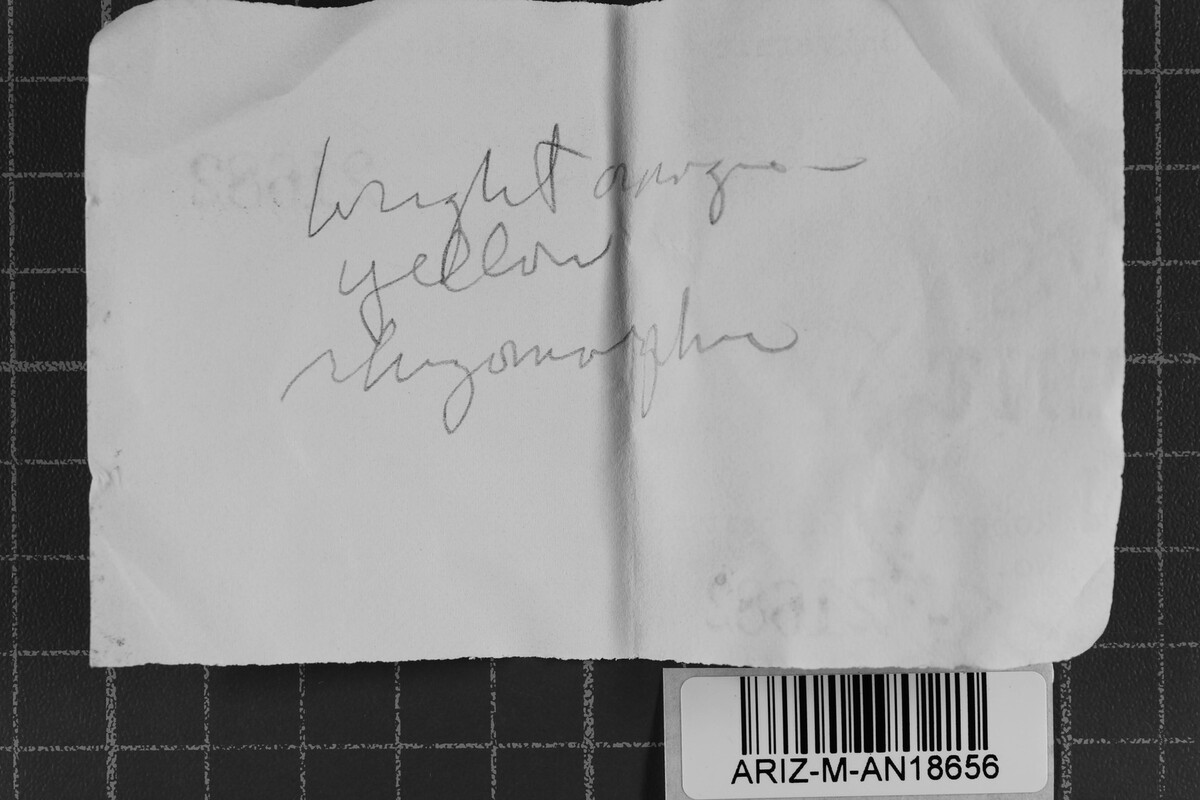 bright orange
yellow
rhizomorphs
ARIZ-M-AN18656